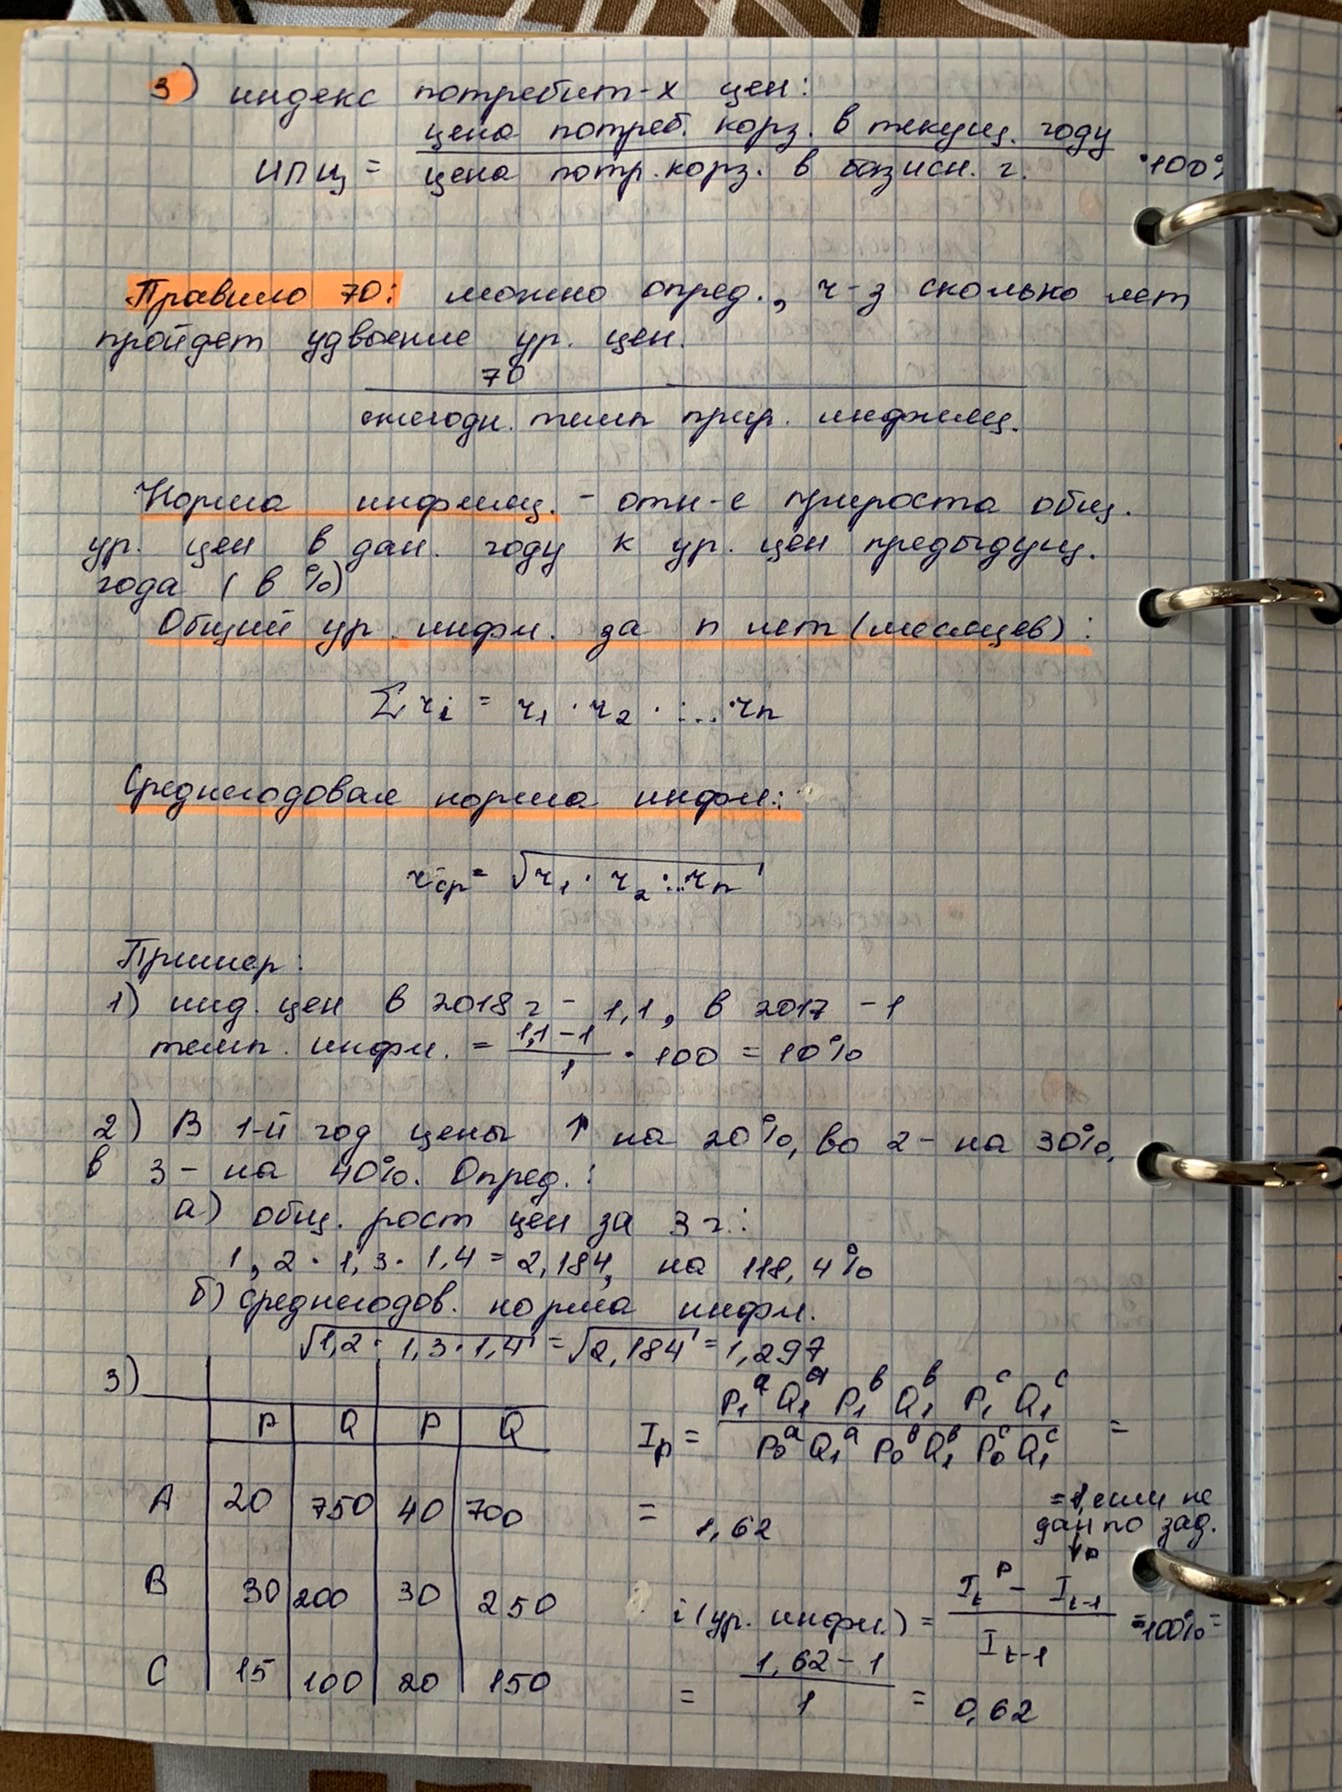 3) индекс потребит-х цен:
ИПЦ = цена потреб. корз. в текущ. году / цена потр. корз. в базисн. г. · 100%
Правило 70: можно опред., ч-з сколько лет
пройдет удвоение ур. цен.
70
ежегодн. темп прир. инфляц.
Норма инфляц. - отн-е прироста общ.
ур. цен в дан. году к ур. цен предыдущ.
года (в %)
Общий ур. инфл. за n лет (месяцев):
∑ r_i = r_1 · r_2 · ... · r_n
Среднегодовая норма инфл.:
r_ср = √(r_1 · r_2 · ... r_n)
Пример:
1) инд. цен в 2018 г - 1,1, в 2017 - 1
темп. инфл. = (1,1 - 1) / 1 · 100 = 10%
2) В 1-й год цены ↑ на 20%, во 2 - на 30%,
в 3 - на 40%. Опред.:
а) общ. рост цен за 3 г.:
1,2 · 1,3 · 1,4 = 2,184, на 118,4%
б) среднегодов. норма инфл.
√(1,2 · 1,3 · 1,4) = √2,184 = 1,297
3)
P Q P Q
A 20 750 40 700
B 30 200 30 250
C 15 100 20 150
I_p = (P_1^a Q_1^a P_1^b Q_1^b P_1^c Q_1^c) / (P_0^a Q_1^a P_0^b Q_1^b P_0^c Q_1^c) =
= 1,62
= 1, если не
дан по зад.
i (ур. инфл.) = (I_t^p - I_{t-1}^p) / I_{t-1} = 100% =
= (1,62 - 1) / 1 = 0,62